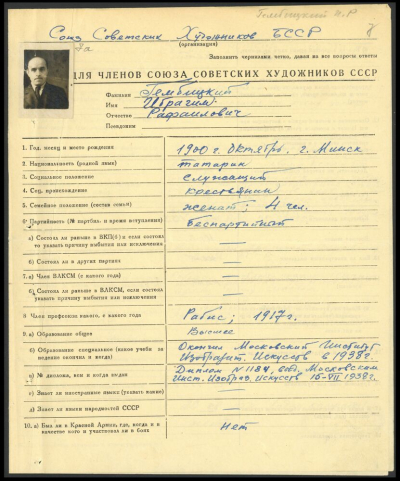 Гембицкий И.Р
Союз Советских Художников БССР
8
(организация)
7а
Заполнять чернилами четко, давая на все вопросы ответы
ДЛЯ ЧЛЕНОВ СОЮЗА СОВЕТСКИХ ХУДОЖНИКОВ СССР
Фамилия Гембицкий
Имя Ибрагим
Отчество Рафаилович
Псевдоним
1. Год, месяц и место рождения 1900 г. Октябрь. г. Минск
2. Национальность (родной язык) татарин
3. Социальное положение служащий
4. Соц. происхождение крестьянин
5. Семейное положение (состав семьи) женат; 4 чел.
6. Партийность (№ партбил. и время вступления) беспартийный
а) Состоял ли раньше в ВКП(б) и если состоял то указать причину выбытия или исключения —
б) Состоял ли в других партиях —
7. а) Член ВЛКСМ (с какого года) —
б) Состоял ли раньше в ВЛКСМ, если состоял указать причину выбытия или исключения —
8. Член профсоюза какого, с какого года Рабис; 1917 г.
9. а) Образование общее Высшее
б) Образование специальное (какое учебн. заведение окончил и когда) Окончил Московский Институт Изобразит. Искусств в 1938 г.
в) № диплома, кем и когда выдан Диплом N 1184, выд. Московским Инст. Изобраз. Искусств 15-VII 1938 г.
г) Знает ли иностранные языки (указать какие) —
д) Знает ли языки народностей СССР —
10. а) Был ли в Красной Армии, где, когда и в качестве кого и участвовал ли в боях нет